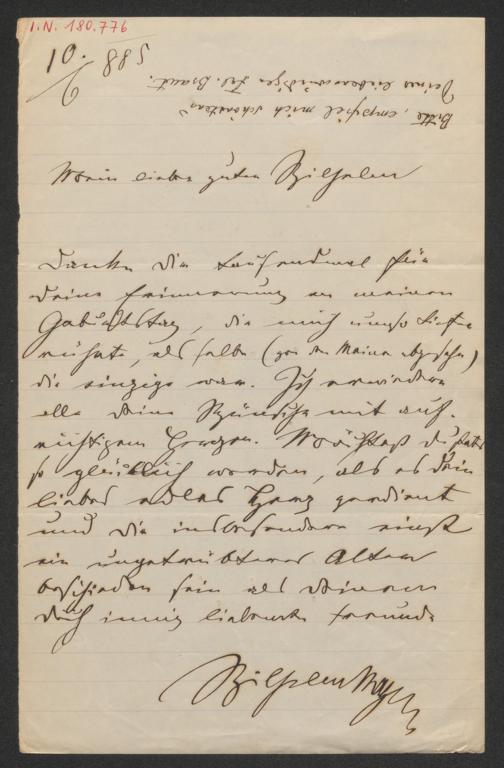 I.N. 180.776
588
10.
Bitte, empfiehl mich schönstens
Deiner liebenswürdigen Frl. Braut.
Mein lieber guter Wilhelm
Danke Dir tausendmal für
Deine Erinnerung an meinen
Geburtstag, die mich umso tiefer
rührte, als selbe (von den Meinen abgesehen)
die einzige war. Ich erwiedere
alle Deine Wünsche mit auf-
richtigem Herzen. Möchtest Du stets
so glücklich werden, als es Dein
liebes edles Herz verdient
und Dir insbesondere einst
ein ungetrübteres Alter
beschieden sein als Deinem
Dich innig liebenden Freunde
Wilhelm